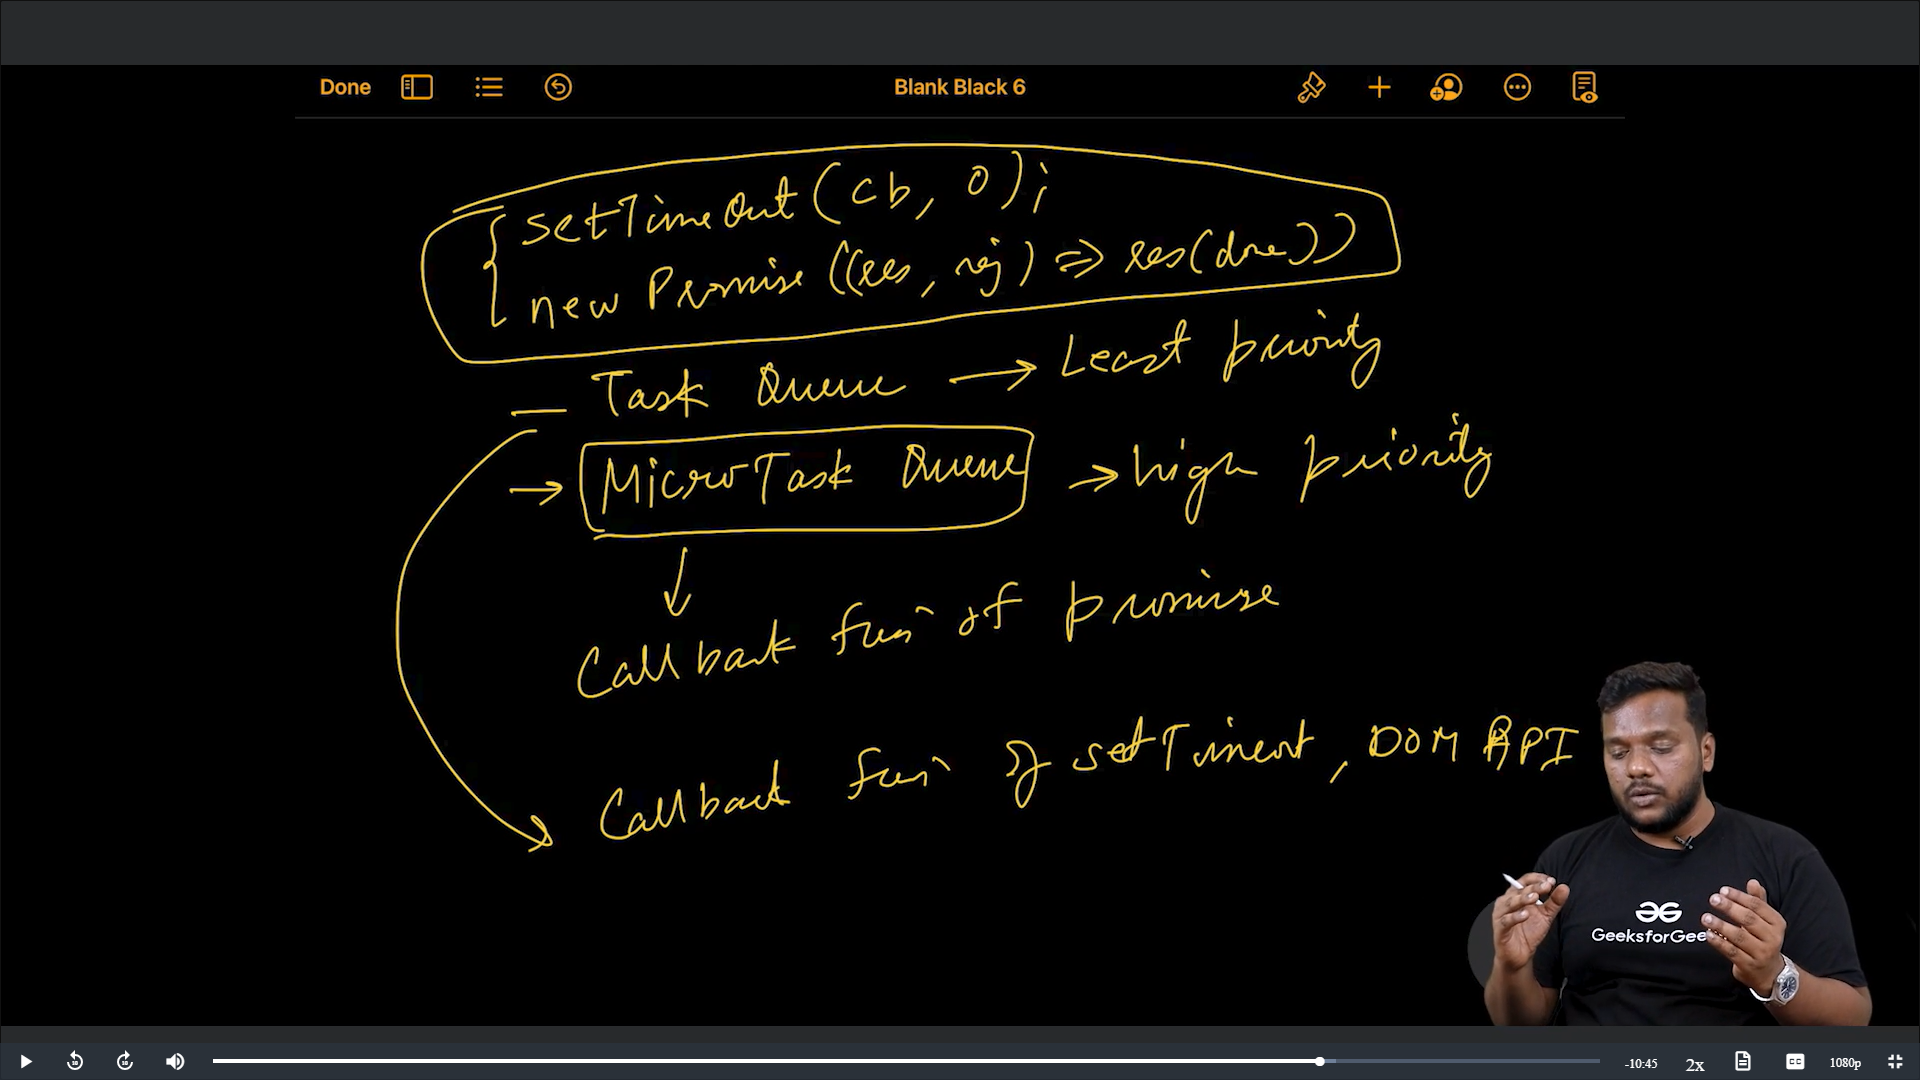 Done
Blank Black 6
setTimeOut(cb, 0);
new Promise((res, rej) => res(done))
Task Queue → Least priority
→ MicroTask Queue → high priority
Callback fun of promise
Callback fun of setTimeout, DOM API
GeeksforGee
-10:45
2x
CC
1080p